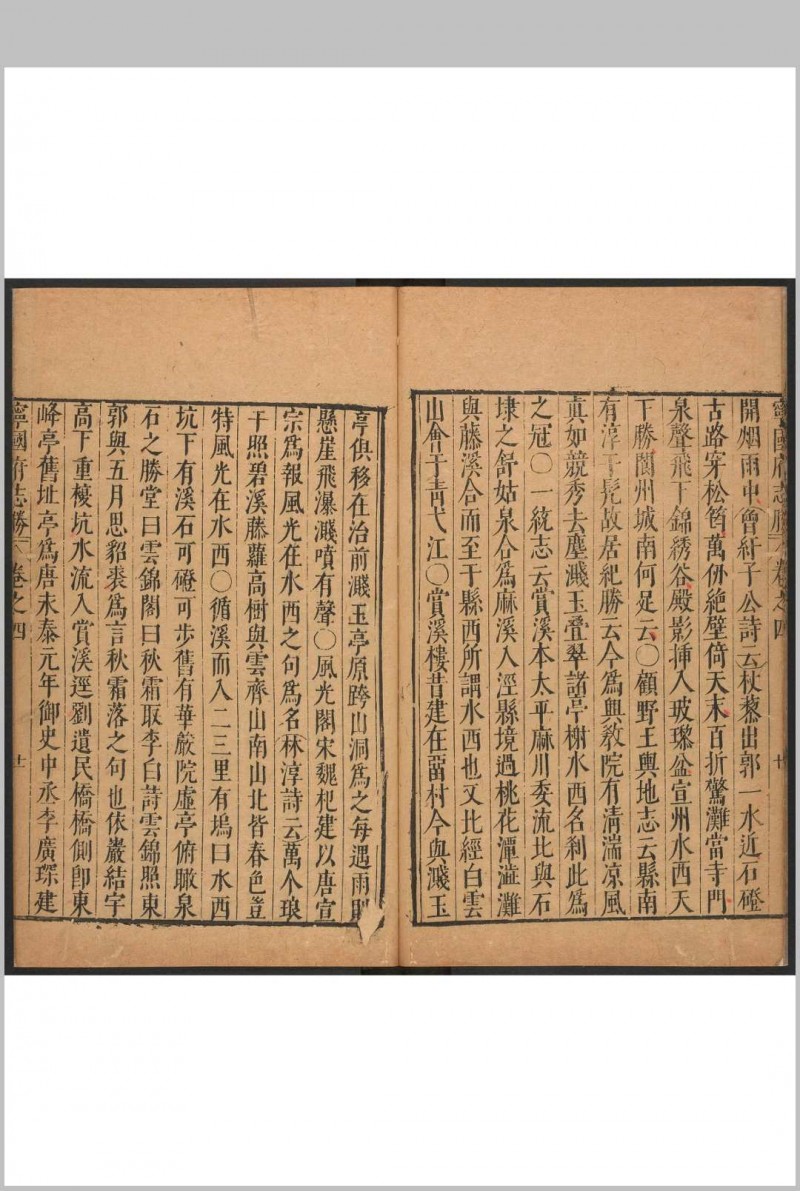 寧國府志勝 卷之四 廿
開烟雨中曾紆子公詩云杖藜出郭一水近石磴
古路穿松筠萬仞絶壁倚天末百折驚灘當寺門
泉聲飛下錦綉谷殿影揷入玻瓈盆宣州水西天
下勝閬州城南何足云〇顧野王輿地志云縣南
有淳于髡故居紀勝云今爲興敎院有淸湍凉風
眞如競秀去塵濺玉叠翠諸亭榭水西名刹此爲
之冠〇一統志云賞溪本太平麻川委流比與石
埭之舒姑泉合爲麻溪入涇縣境過桃花潭澁灘
與藤溪合而至于縣西所謂水西也又比經白雲
山會于靑弋江〇賞溪樓昔建在畱村今與濺玉
亭俱移在治前濺玉亭原跨山洞爲之每遇雨則
懸崖飛瀑濺噴有聲〇風光閣宋魏杞建以唐宣
宗爲報風光在水西之句爲名林淳詩云萬个琅
干照碧溪藤蘿高樹與雲齊山南山北皆春色豈
特風光在水西〇循溪而入二三里有塢曰水西
坑下有溪石可磴可步舊有華嚴院虛亭俯瞰泉
石之勝堂曰雲錦閣曰秋霜取李白詩雲錦照東
郭與五月思貂裘爲言秋霜落之句也依巖結宇
高下重複坑水流入賞溪逕劉遺民橋橋側卽東
峰亭舊址亭爲唐未泰元年御史中丞李廣琛建
寧國府志勝 卷之四 廿一